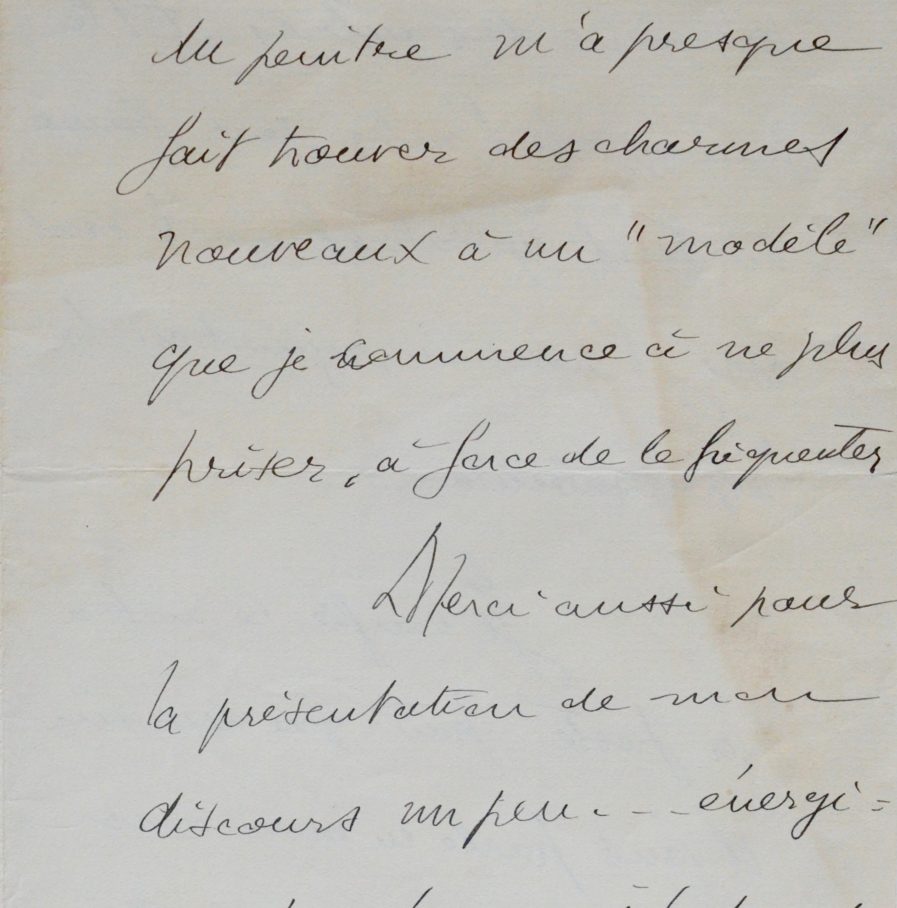 du peintre m'a presque
fait trouver des charmes
nouveaux à un "modèle"
que je commence à ne plus
priser, à force de le fréquenter
Merci aussi pour
la présentation de mon
discours un peu... énergi=